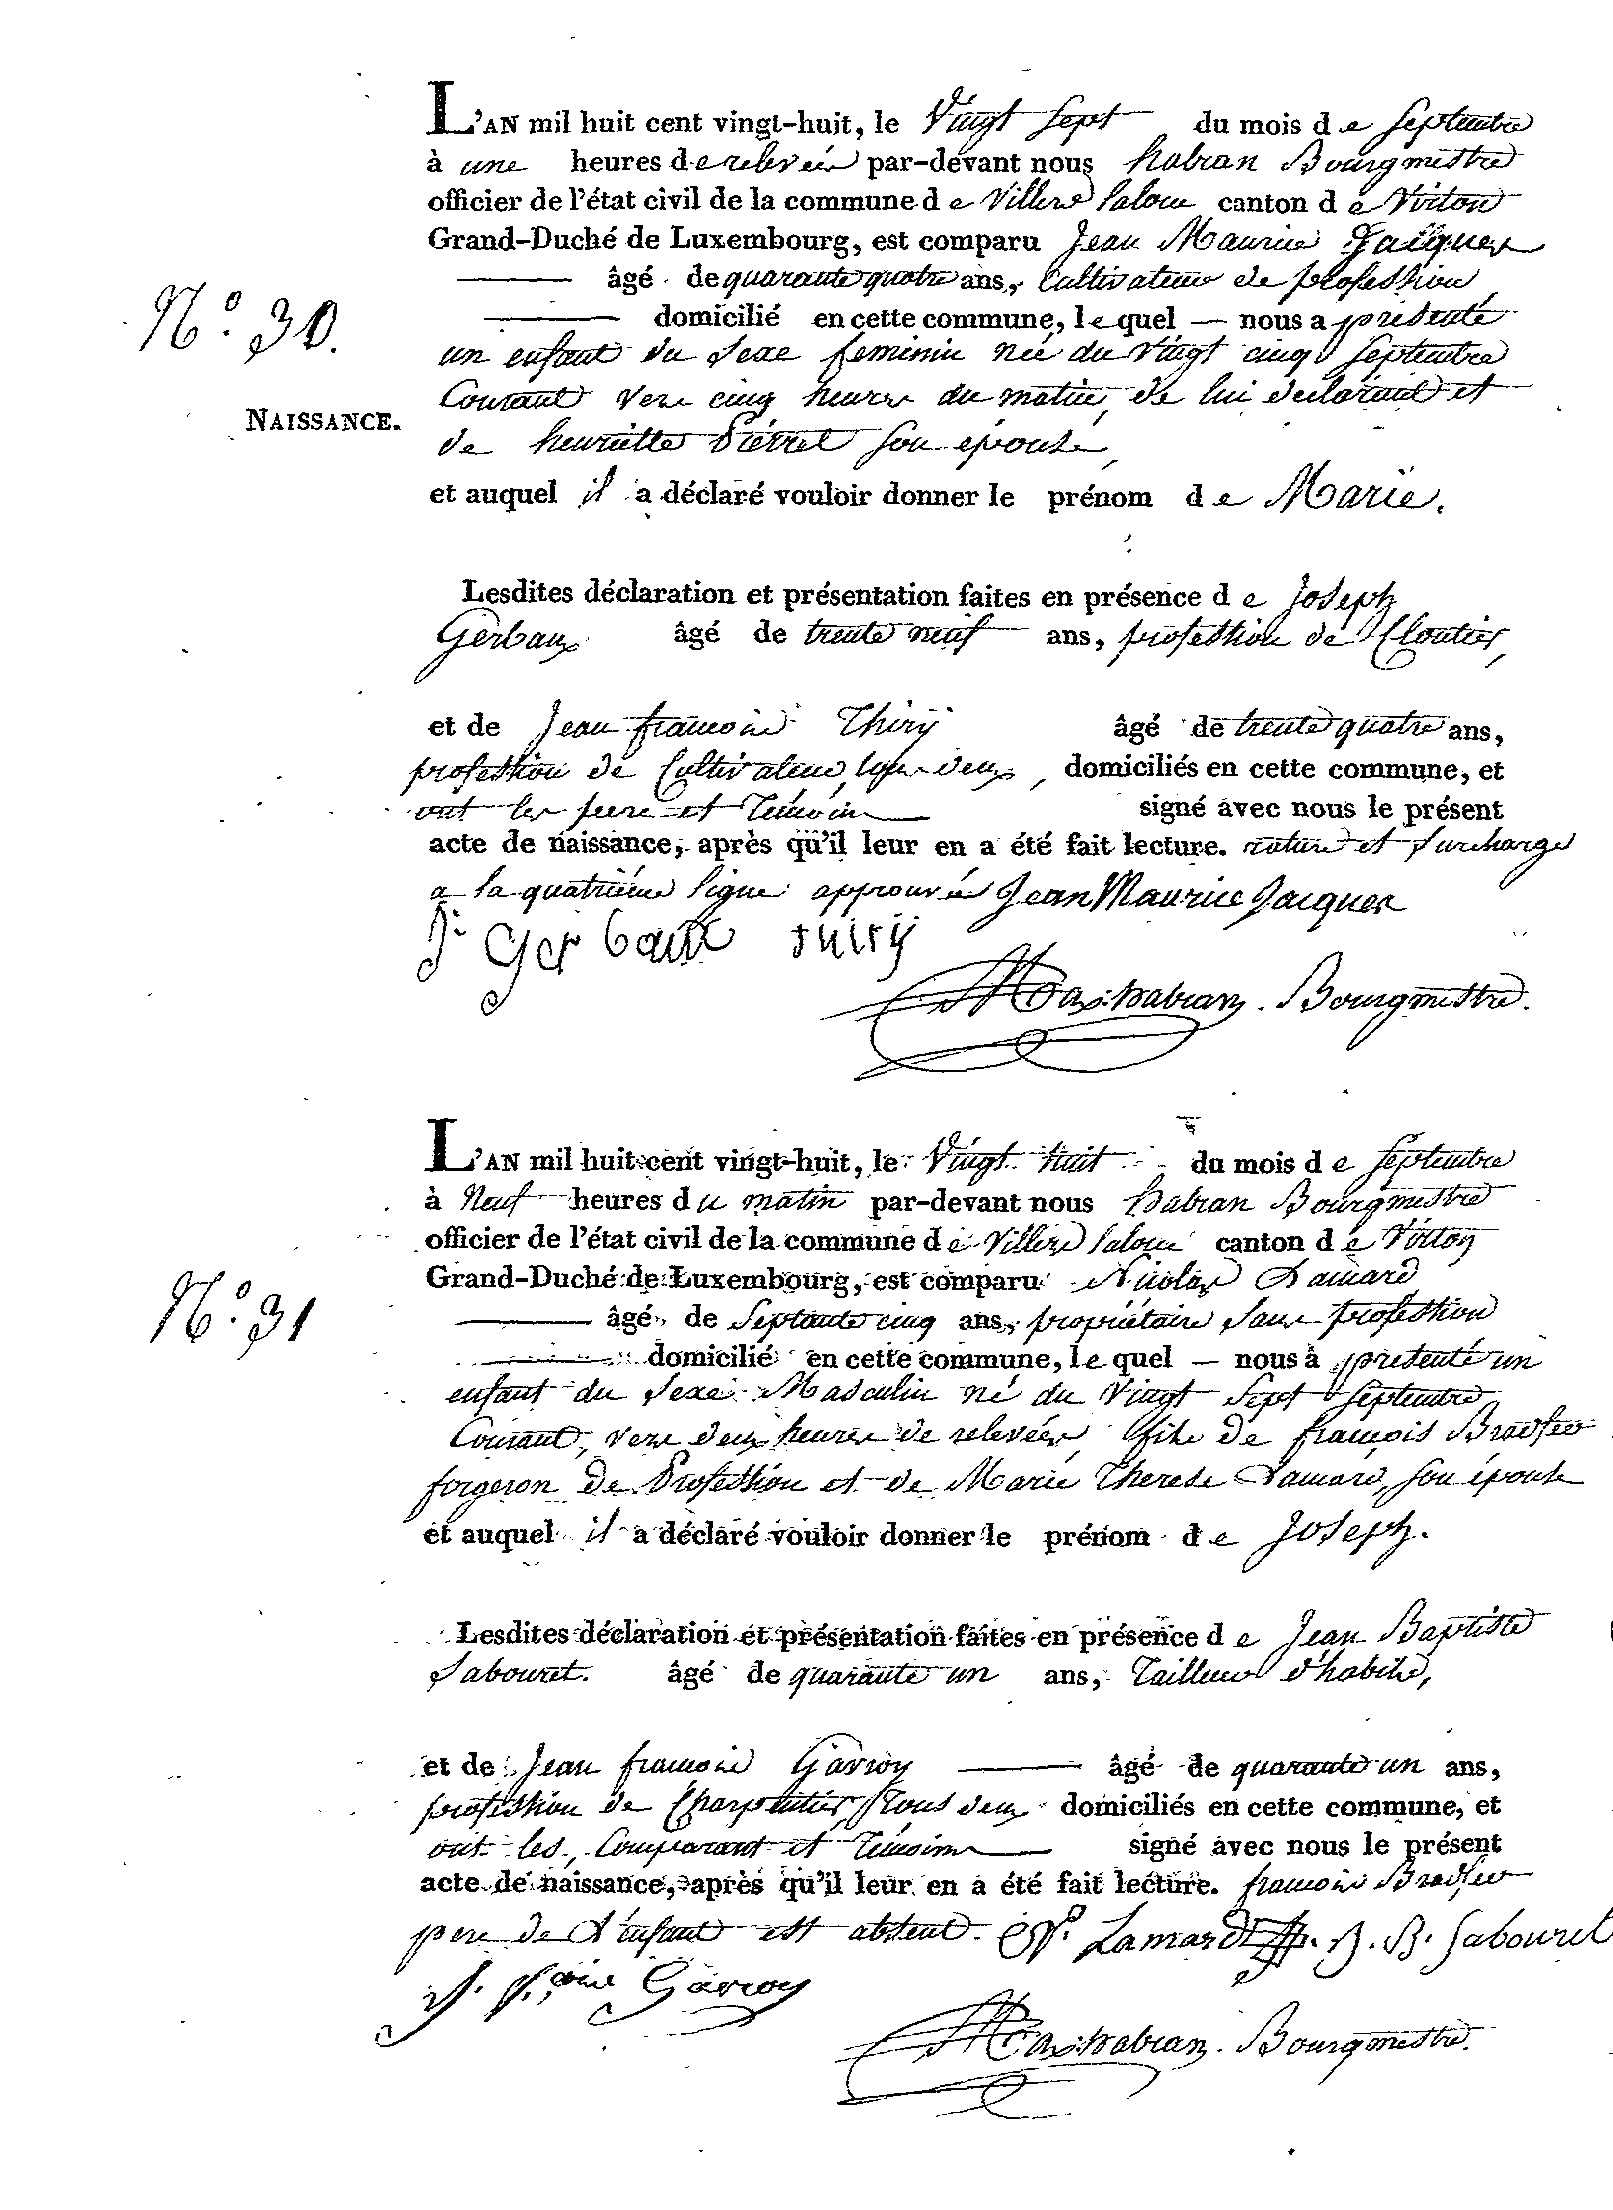 L'AN mil huit cent vingt-huit, le Vingt Sept du mois de Septembre
à une heures de relevée par-devant nous habran Bourgmestre
officier de l'état civil de la commune de Villers Laloue canton de Virton
Grand-Duché de Luxembourg, est comparu Jean Maurice Jacques
âgé de quarante quatre ans, Cultivateur de profession
N.o 30.
domicilié en cette commune, lequel — nous a présenté
un enfant du Sexe feminin née du Vingt cinq Septembre
Courant vers cinq heures du matin, de lui declarant et
NAISSANCE.
de henriette Pierret son épouse,
et auquel il a déclaré vouloir donner le prénom de Marie.
Lesdites déclaration et présentation faites en présence de Joseph
Gerbaux âgé de trente neuf ans, profession de Cloutier,
et de Jean francois Thirÿ âgé de trente quatre ans,
profession de Cultivateur, tous deux, domiciliés en cette commune, et
ont les pere et Temoins signé avec nous le présent
acte de naissance, après qu'il leur en a été fait lecture. rature et surcharge
a la quatrième ligne approuvée Jean Maurice Jacques
J: Gerbaux Thirÿ
Max: habran. Bourgmestre.
L'AN mil huit cent vingt-huit, le Vingt huit du mois de Septembre
à Neuf heures du matin par-devant nous habran Bourgmestre
officier de l'état civil de la commune de Villers Laloue canton de Virton
Grand-Duché de Luxembourg, est comparu Nicolas Lamard
N.o 31
âgé de Septante cinq ans, propriétaire Sans profession
domicilié en cette commune, lequel — nous à présenté un
enfant du Sexe Masculin né du Vingt Sept Septembre
Courant, vers deux heures de relevée, fils de françois
forgeron de Profession et de Marie Therese Lamard, son épouse
et auquel il a déclaré vouloir donner le prénom de Joseph.
Lesdites déclaration et présentation faites en présence de Jean Baptiste
Sabouret. âgé de quarante un ans, Tailleur d'habits,
et de Jean francois Gavroy âgé de quarante un ans,
profession de Charpentier, Tous deux domiciliés en cette commune, et
ont les, Comparant et Témoins signé avec nous le présent
acte de naissance, après qu'il leur en a été fait lecture. francois
pere de L'enfant est absent. Lamard J. B. Sabouret
J. f.cois Gavroy
Max: habran. Bourgmestre.